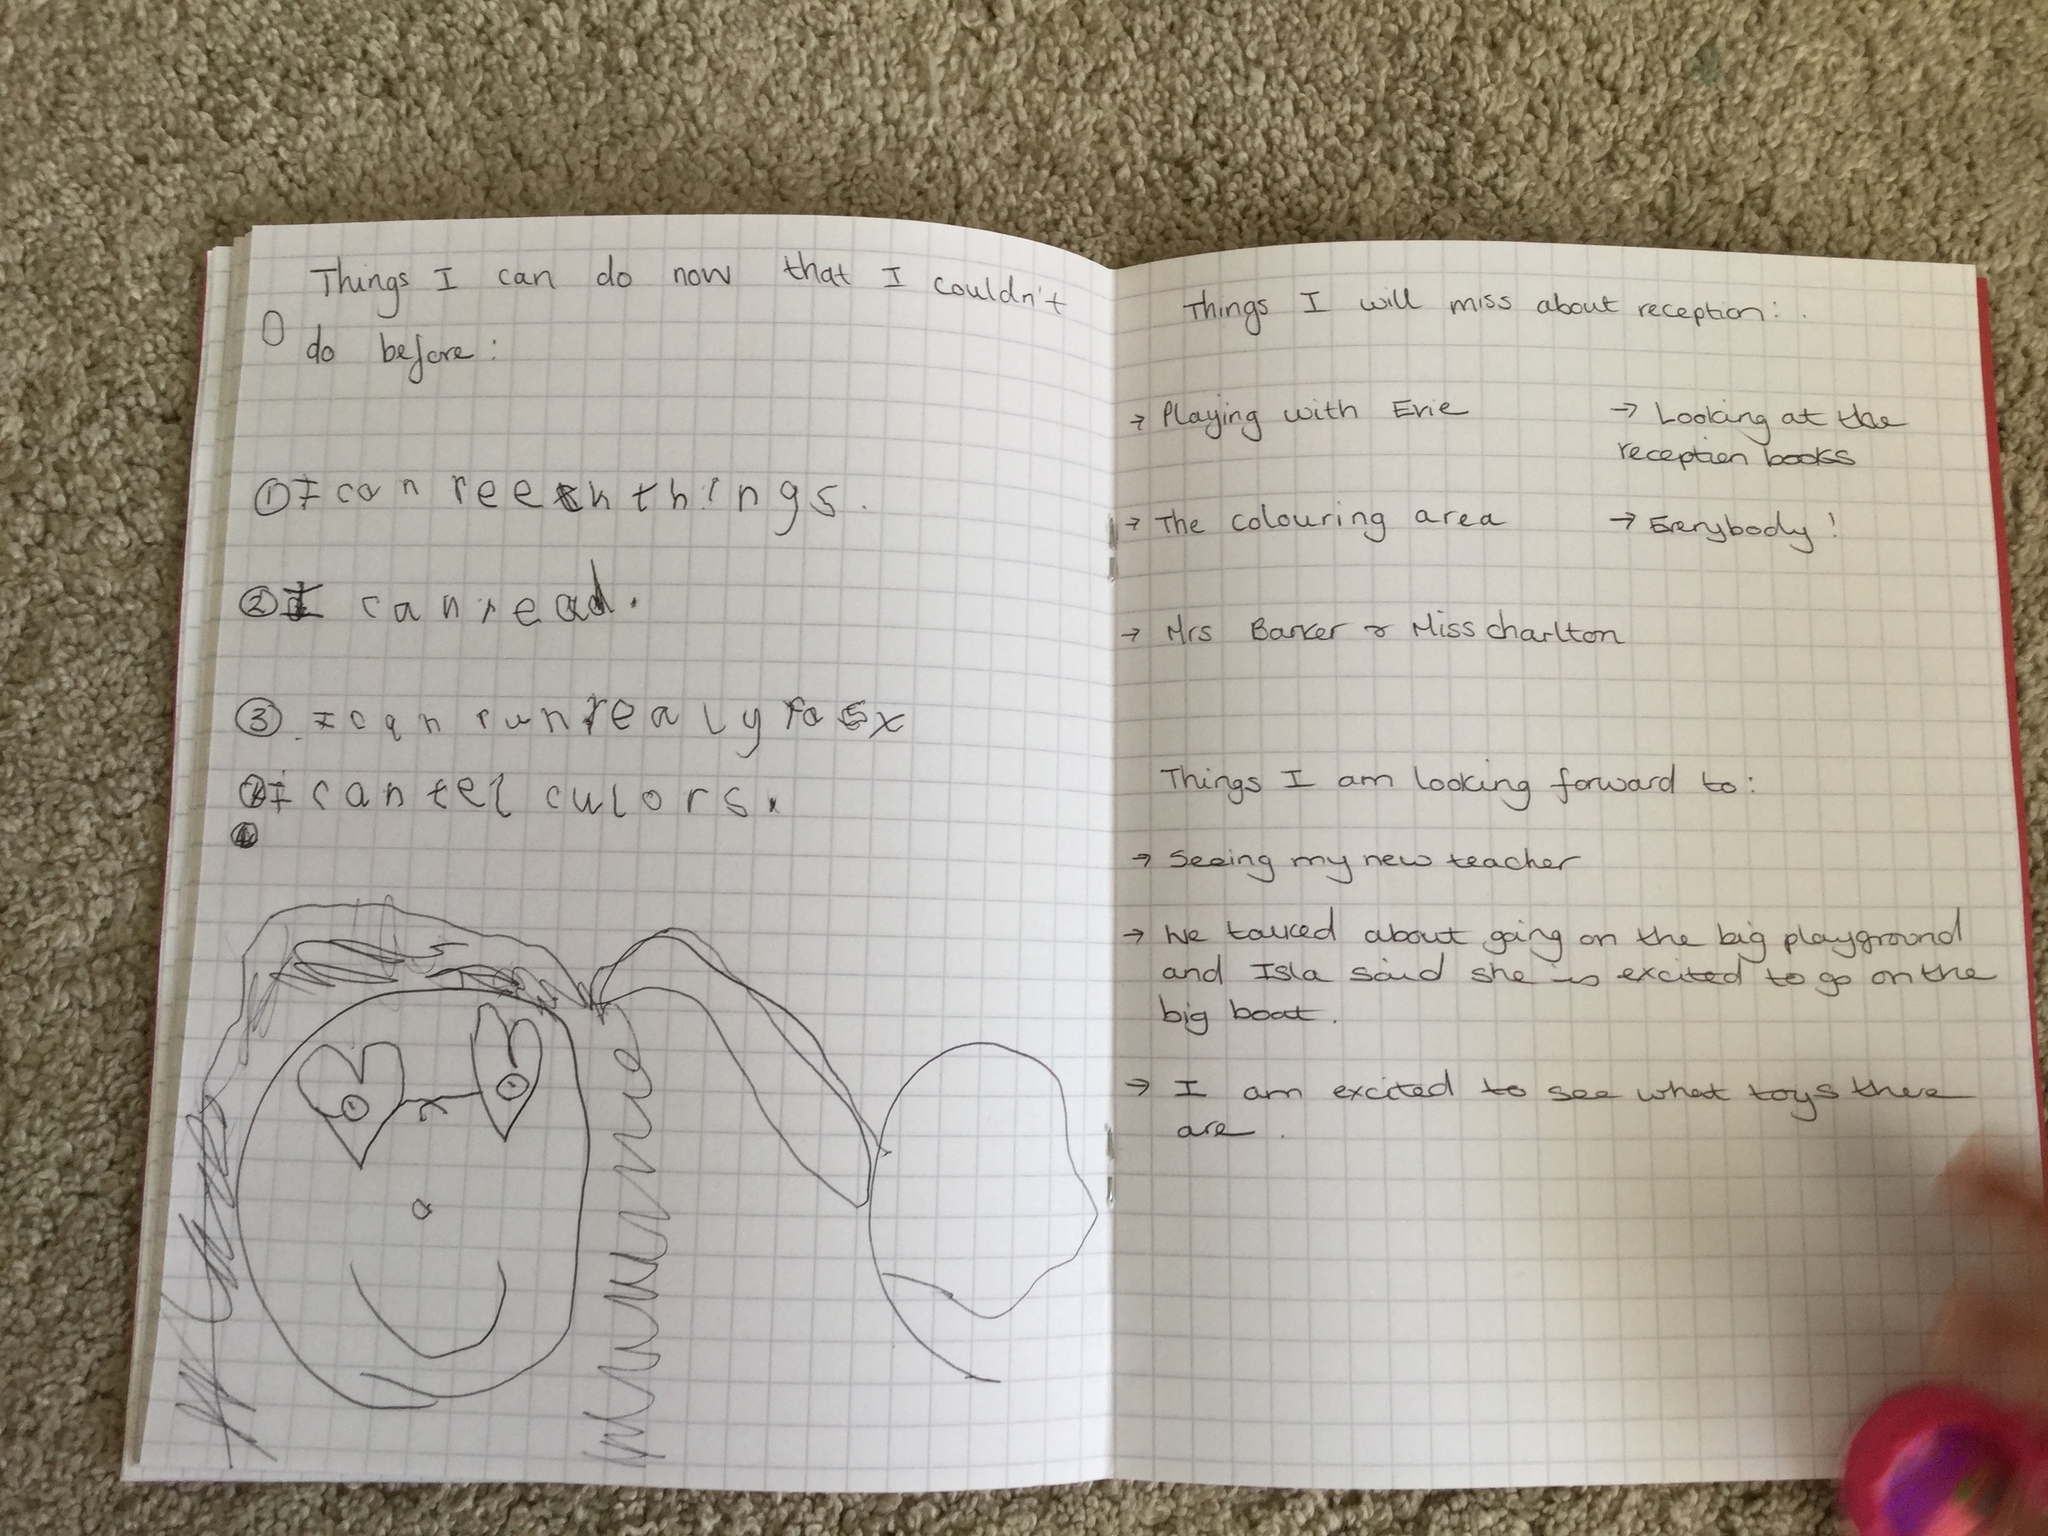 Things I can do now that I couldn't
do before:
① I can reech things.
② I can read.
③. I can run realy fast
④ I can tel culors.
Things I will miss about reception:
→ Playing with Evie
→ The colouring area
→ Mrs Barker & Miss charlton
→ Looking at the
reception books
→ Everybody!
Things I am looking forward to:
→ Seeing my new teacher
→ We talked about going on the big playground
and Isla said she is excited to go on the
big boat.
→ I am excited to see what toys there
are.